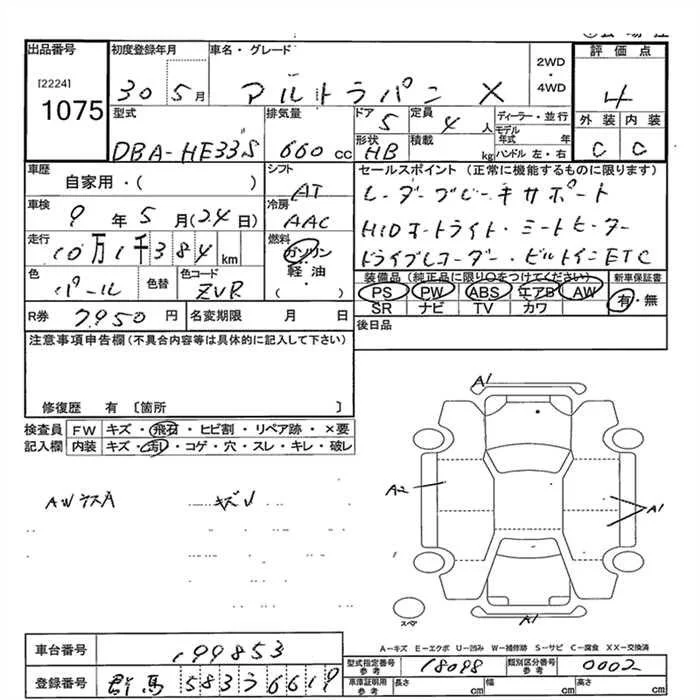 出品番号 初度登録年月 車名・グレード
[2224]
1075
30 5月 アルトラパン X
2WD
・
4WD
評価点
4
型式 排気量 ドア 定員 ディーラー・並行
DBA-HE33S 660 cc 5 4 人
モデル年式 年
形状 積載 外装 内装
HB kg ハンドル 左・右 C C
車歴 シフト セールスポイント (正常に機能するものに限ります)
自家用・( ) AT レーダーブレーキサポート
車検 冷房
9年5月(24日) AAC HIDオートライト・シートヒーター
走行 燃料
10万1千384km ガソリン ドライブレコーダー・ビルトインETC
軽油
( )
色 色替 色コード
パール ZVR
装備品 (純正品に限り○をつけてください) 新車保証書
PS PW ABS エアB AW 有・無
SR ナビ TV カワ
R券 7950円 名変期限 月 日 後日品
注意事項申告欄(不具合内容等は具体的に記入して下さい)
修復歴 有 〔箇所 〕
検査員 FW キズ・飛石・ヒビ割・リペア跡・×要
記入欄 内装 キズ・汚レ・コゲ・穴・スレ・キレ・破レ
A1
A2
A1
A1
AWキズA キズレ
スペア
A-キズ E-エクボ U-凹み W-補修跡 S-サビ C-腐食 XX-交換済
車台番号 199853
型式指定番号 参考 18098 類別区分番号 参考 0002
登録番号 群馬 583 フ 6619
車庫証明用 参考 長さ cm 幅 cm 高さ cm